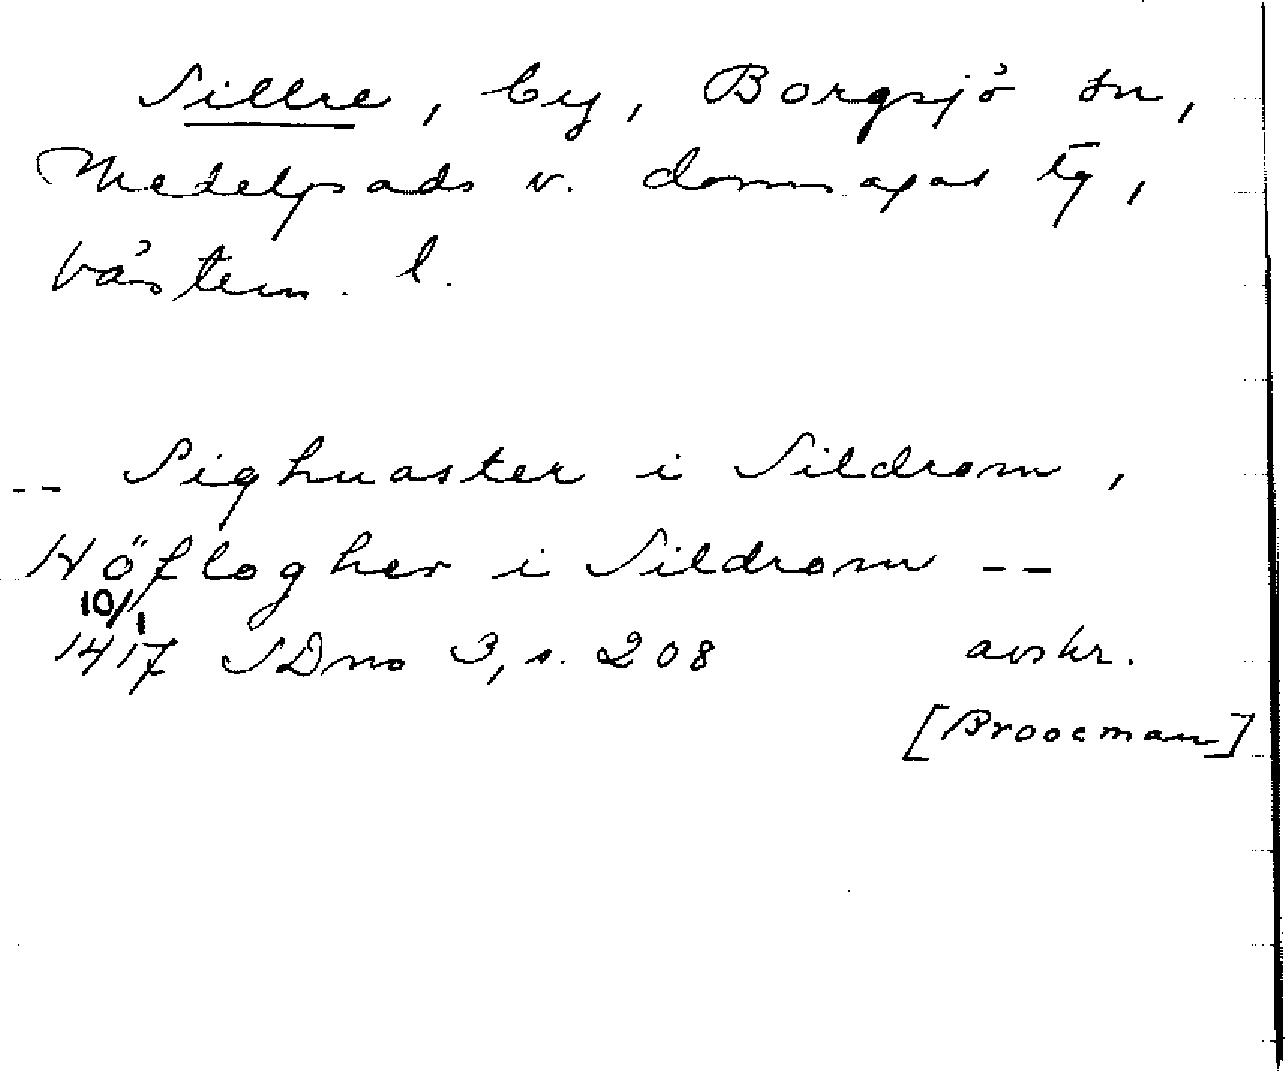 Sillre, by, Borgsjö sn,
Medelpads v. domsagas tg,
Västern. l.
-- Sighuaster i Sildrom,
Höflogher i Sildrom --
10/1
1417 SDns 3, s. 208 avskr.
[Brooeman]